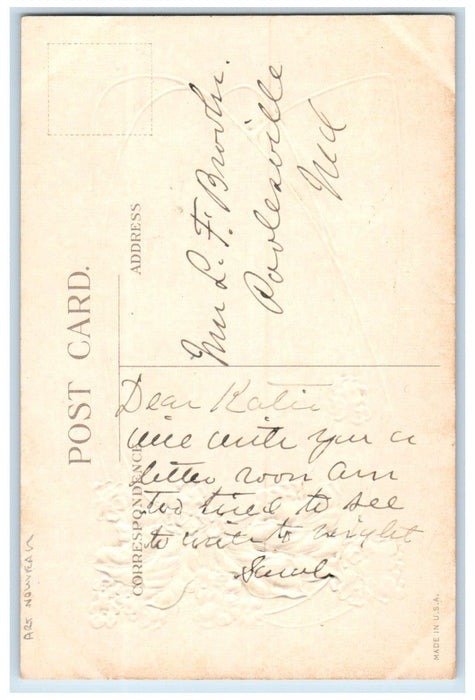 POST CARD.
CORRESPONDENCE
ADDRESS
L. F.
Poolesville
Md
Dear Katie
will write you a
letter soon am
too tired to see
to write to night
MADE IN U.S.A.
ART NOUVEAU